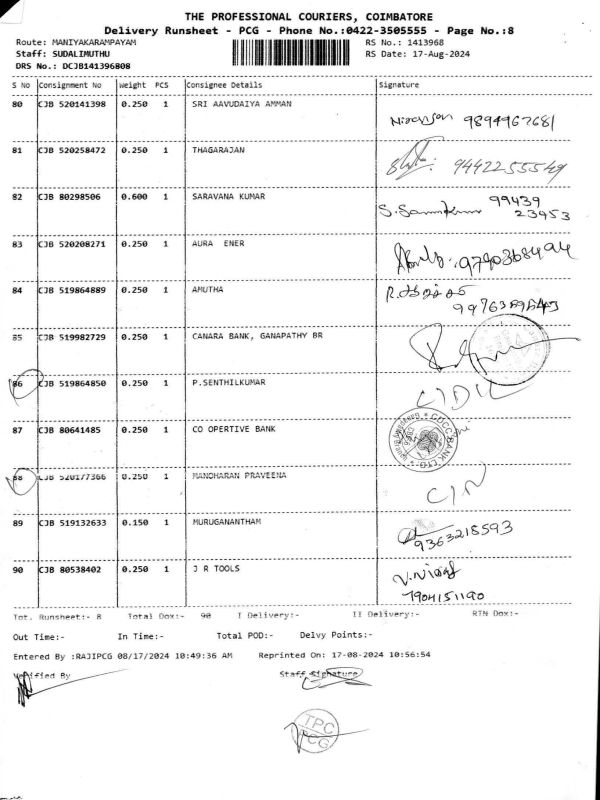 THE PROFESSIONAL COURIERS, COIMBATORE
Delivery Runsheet - PCG - Phone No.:0422-3505555 - Page No.:8
Route: MANIYAKARAMPAYAM RS No.: 1413968
Staff: SUDALIMUTHU RS Date: 17-Aug-2024
DRS No.: DCJB141396808
S No Consignment No Weight PCS Consignee Details Signature
80 CJB 520141398 0.250 1 SRI AAVUDAIYA AMMAN
9894967681
81 CJB 520258472 0.250 1 THAGARAJAN
9442255549
82 CJB 80298506 0.600 1 SARAVANA KUMAR 99439
23953
83 CJB 520208271 0.250 1 AURA ENER
84 CJB 519864889 0.250 1 AMUTHA
85 CJB 519982729 0.250 1 CANARA BANK, GANAPATHY BR
86 CJB 519864850 0.250 1 P.SENTHILKUMAR
87 CJB 80641485 0.250 1 CO OPERTIVE BANK
88 CJB 520177366 0.250 1 MANOHARAN PRAVEENA
89 CJB 519132633 0.150 1 MURUGANANTHAM
9363218593
90 CJB 80538402 0.250 1 J R TOOLS
7904151190
Tot. Runsheet:- 8 Total Dox:- 90 I Delivery:- II Delivery:- RTN Dox:-
Out Time:- In Time:- Total POD:- Delvy Points:-
Entered By :RAJIPCG 08/17/2024 10:49:36 AM Reprinted On: 17-08-2024 10:56:54
Verified By Staff Signature
TPC
PCG